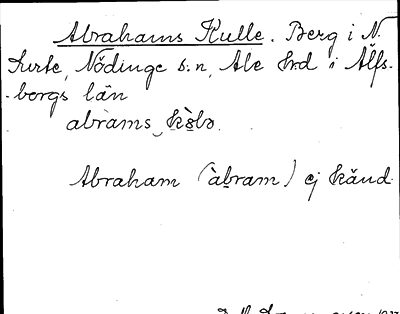 Abrahams Kulle. Berg i N.
Surte, Nödinge s:n, Ale h:d i Älfs-
-borgs län
abràms kòlə.
Abraham (àbram) ej känd.